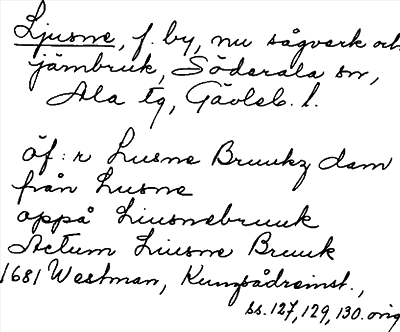 Ljusne, f. by, nu sågverk och
järnbruk, Söderala sn,
Ala tg, Gävleb. l.
öf: r Lusne Bruukz dam
från Lusne
oppå Liusnebruuk
Actum Liusne Bruuk
1681 Westman, Kungsådreinst.,
ss. 127, 129, 130. orig